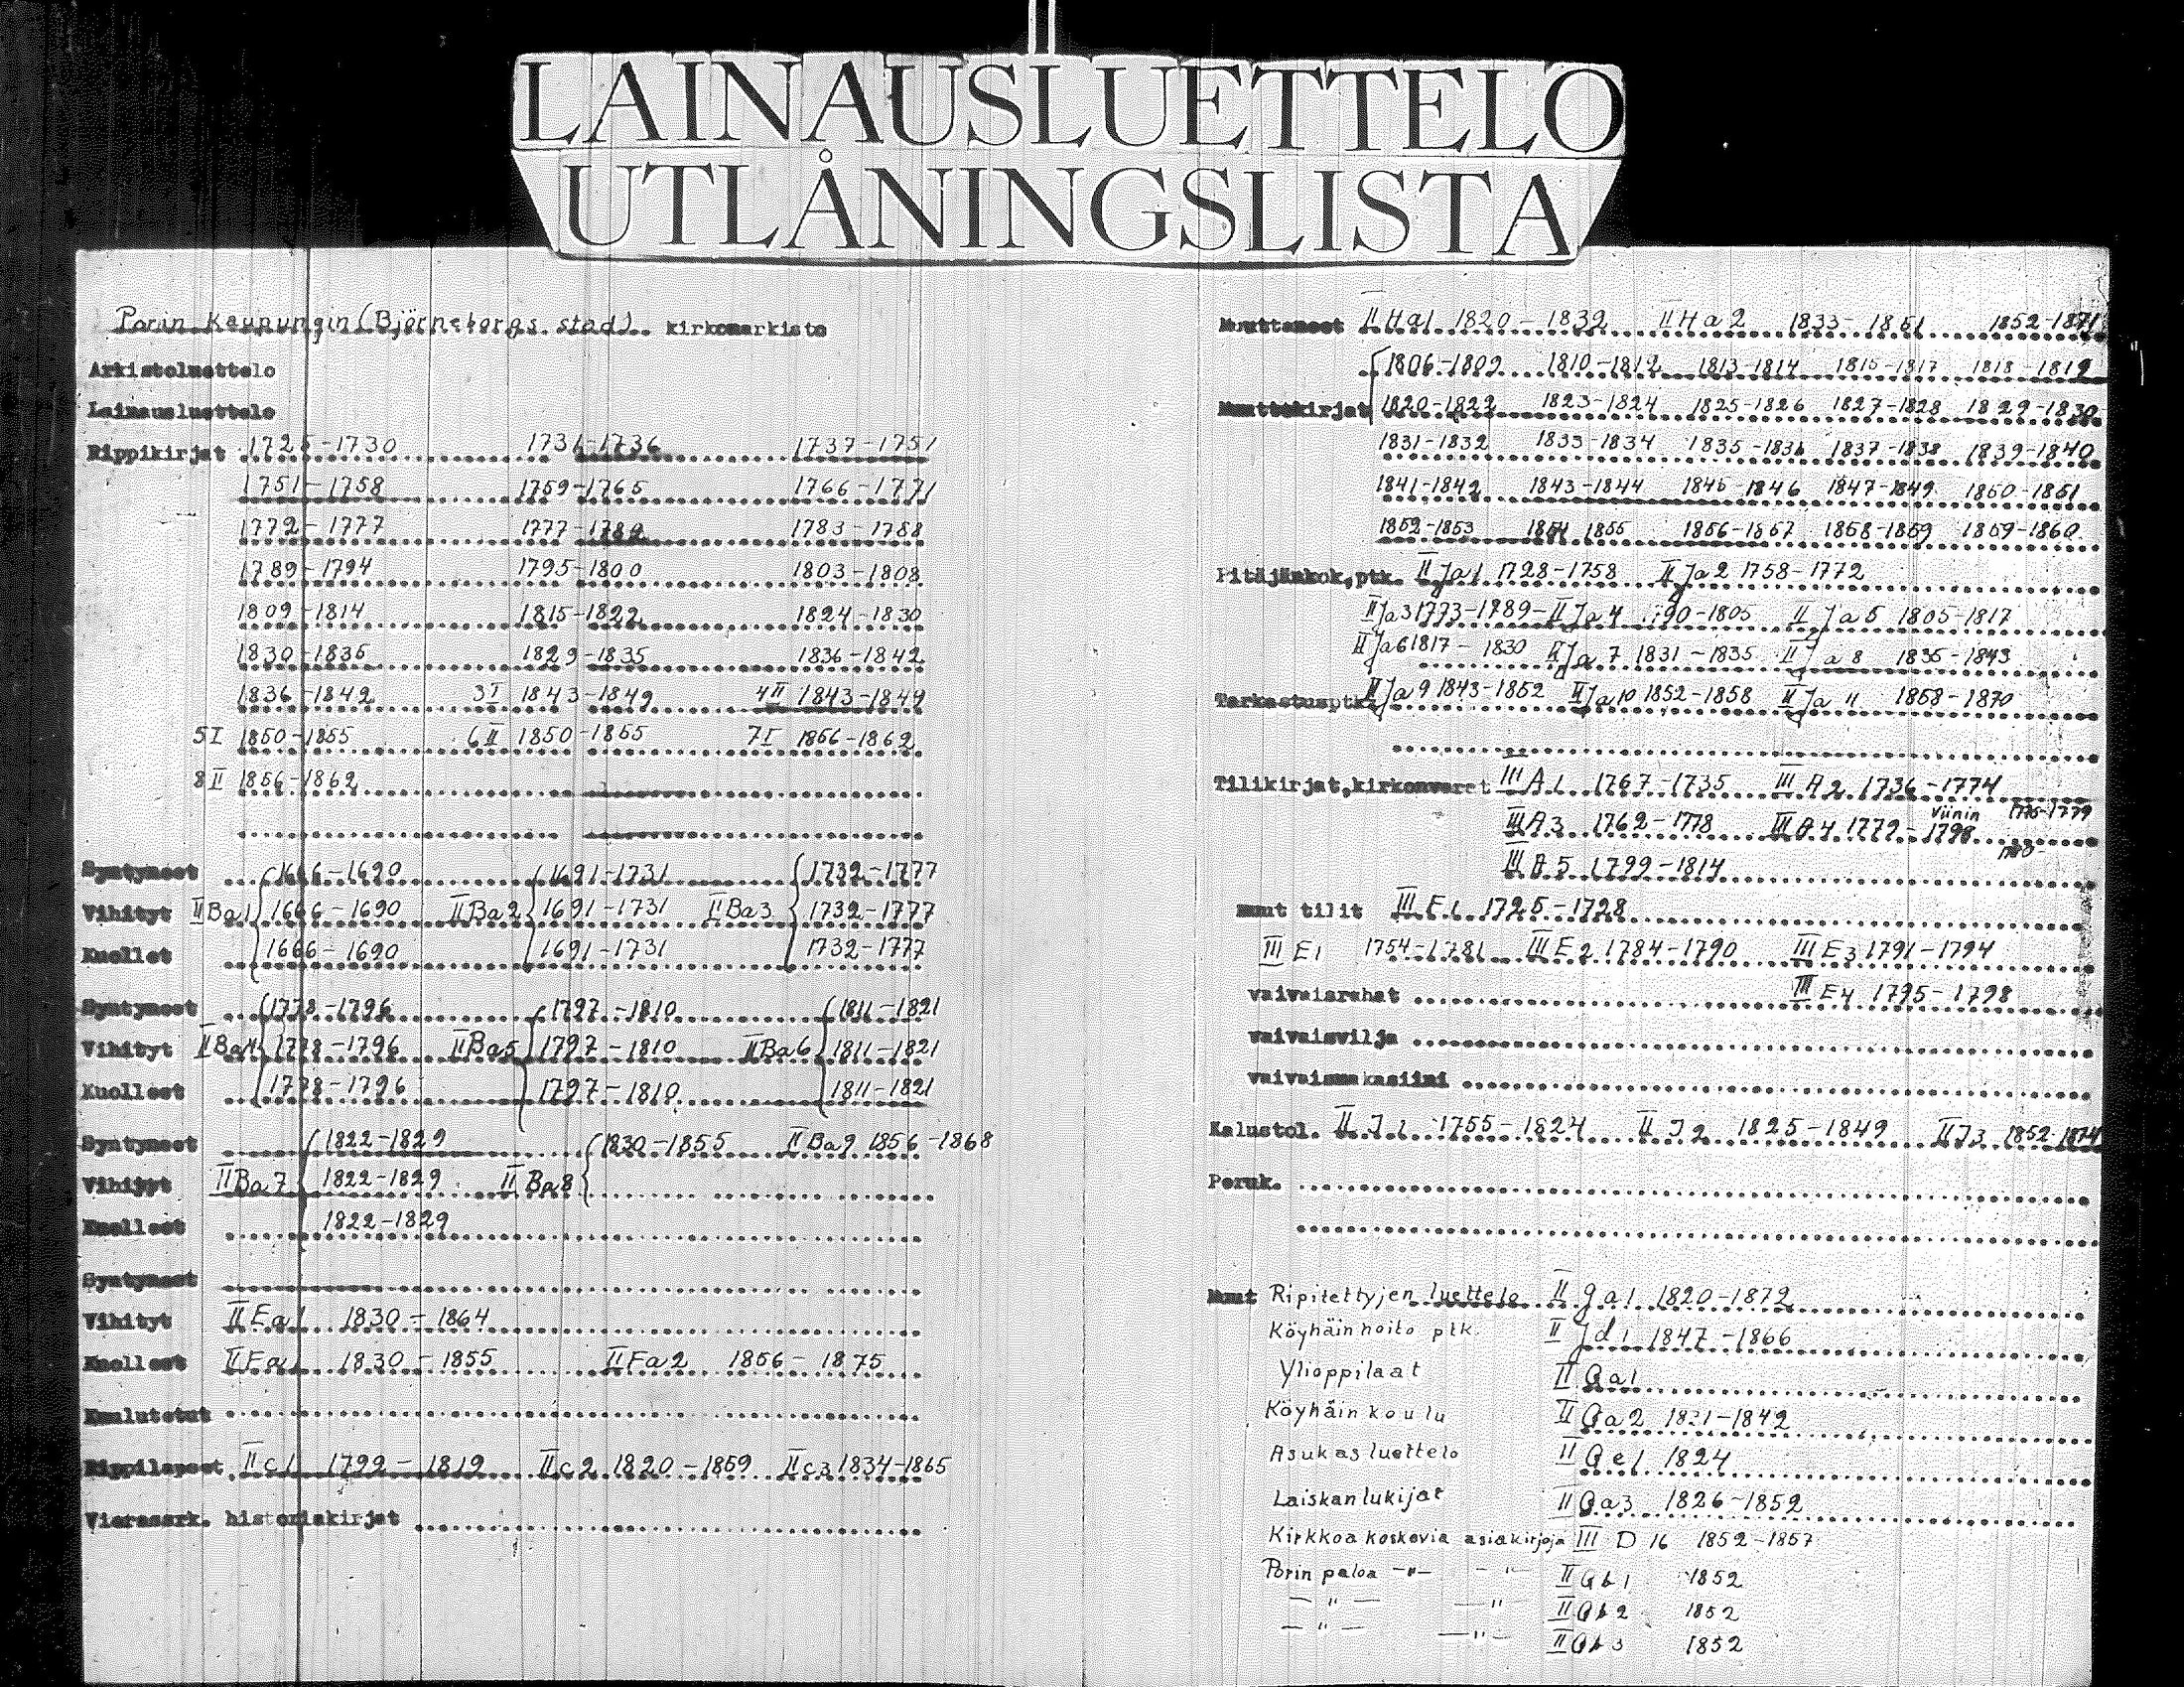 LAINAUSLUETTELO
UTLÅNINGSLISTA
Porin Kaupungin (Björneborgs. stad) kirkonarkisto
Arkistoluettelo
Lainausluettelo
Rippikirjat 1725-1730 1731-1736 1737-1751
1751-1758 1759-1765 1766-1771
1772-1777 1777-1782 1783-1788
1789-1794 1795-1800 1803-1808
1809-1814 1815-1822 1824-1830
1830-1835 1829-1835 1836-1842
1836-1842 3I 1843-1849 4II 1843-1849
5I 1850-1855 6II 1850-1855 7I 1856-1862
8II 1856-1862
Syntyneet 1666-1690 1691-1731 1732-1777
Vihityt II Ba1 1666-1690 II Ba2 1691-1731 II Ba3 1732-1777
Kuollet 1666-1690 1691-1731 1732-1777
Syntyneet 1778-1796 1797-1810 1811-1821
Vihityt II Ba4 1778-1796 II Ba5 1797-1810 II Ba6 1811-1821
Kuolleet 1778-1796 1797-1810 1811-1821
Syntyneet 1822-1829 1830-1855 II Ba9 1856-1868
Vihityt II Ba7 1822-1829 II Ba8
Kuolleet 1822-1829
Syntyneet
Vihityt II Ea1 1830-1864
Kuolleet II Fa1 1830-1855 II Fa2 1856-1875
Kuulutetut
Rippilapset II c1 1799-1819 II c2 1820-1859 II c3 1834-1865
Vierasark. historiakirjat
Muuttaneet II Ha1 1820-1832 II Ha2 1833-1851 1852-1871
1806-1809 1810-1812 1813-1814 1815-1817 1818-1819
Muuttokirjat 1820-1822 1823-1824 1825-1826 1827-1828 1829-1830
1831-1832 1833-1834 1835-1836 1837-1838 1839-1840
1841-1842 1843-1844 1845-1846 1847-1849 1850-1851
1852-1853 1854 1855 1856-1857 1858-1859 1859-1860
Pitäjänkok.ptk. II Ja1 1728-1758 II Ja2 1758-1772
II Ja3 1773-1789 - II Ja4 1790-1805 II Ja5 1805-1817
II Ja6 1817-1830 II Ja7 1831-1835 II Ja8 1835-1843
Tarkastusptk. II Ja9 1843-1852 II Ja10 1852-1858 II Ja11 1858-1870
Tilikirjat,kirkonvarat III A1 1767-1735 III A2 1736-1774
III A3 1762-1778 III A4 1779-1798 Viinin 1775-1779
III A5 1799-1814
muut tilit III E1 1725-1728
III E1 1754-1781 III E2 1784-1790 III E3 1791-1794
vaivaisrahat III E4 1795-1798
vaivaisvilja
vaivaismakasiini
Kalustol. II J1 1755-1824 II J2 1825-1849 II J3 1852-1874
Peruk.
Muut Ripitettyjen luettelo II ga1 1820-1872
Köyhäinhoito ptk. II Jd1 1847-1866
Ylioppilaat II Ga1
Köyhäin koulu II Ga2 1821-1842
Asukasluettelo II Ge1 1824
Laiskanlukijat II Ga3 1826-1852
Kirkkoa koskevia asiakirjoja III D 16 1852-1857
Porin paloa -"- -"- II Gb1 1852
-"- -"- II Gb2 1852
-"- -"- II Gb3 1852